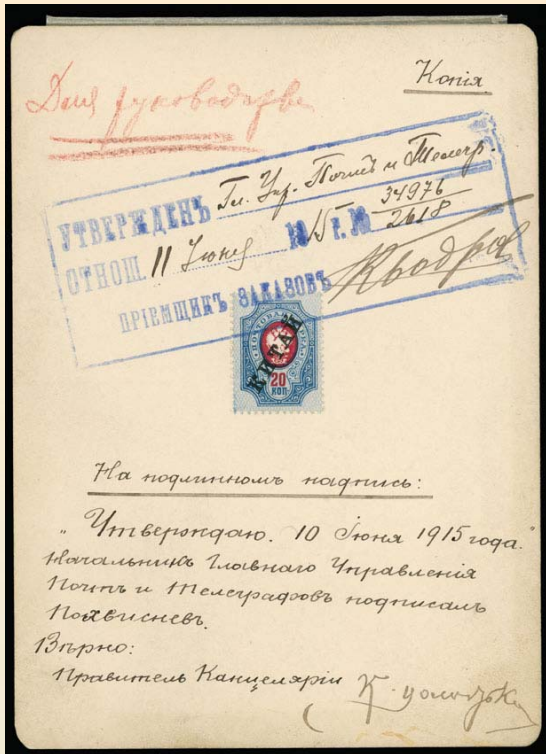 Копія.
Для руководства
УТВЕРЖДЕНЪ Гл. Упр. Почтъ и Телегр.
ОТНОШ. 11 Іюня 1915 г. № 34976
2618
ПРІЕМЩИКЪ ЗАКАЗОВЪ
ПОЧТОВАЯ МАРКА
КИТАЙ
20
КОП
На подлинномъ надпись:
„Утверждаю. 10 Іюня 1915 года."
Начальникъ Главнаго Управленія
Почтъ и Телеграфовъ подписалъ
Похвисневъ.
Вѣрно:
Правитель Канцеляріи